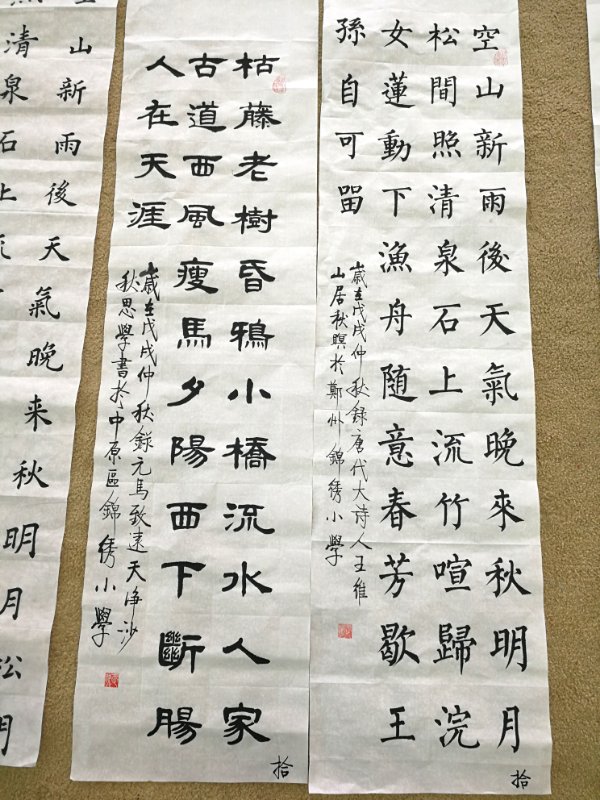 空山新雨後天氣晚來秋明月
松間照清泉石上流竹喧歸浣
女蓮動下漁舟随意春芳歇王
孫自可留
歲在戊戌仲秋錄唐代大诗人王維
山居秋暝於鄭州錦绣小學
拾
枯藤老樹昏鴉小橋流水人家
古道西風瘦馬夕陽西下斷腸
人在天涯
歲在戊戌仲秋錄元馬致遠天净沙
秋思學書於中原區錦绣小學
拾
山新雨後天氣晚来秋明月松
清泉石上